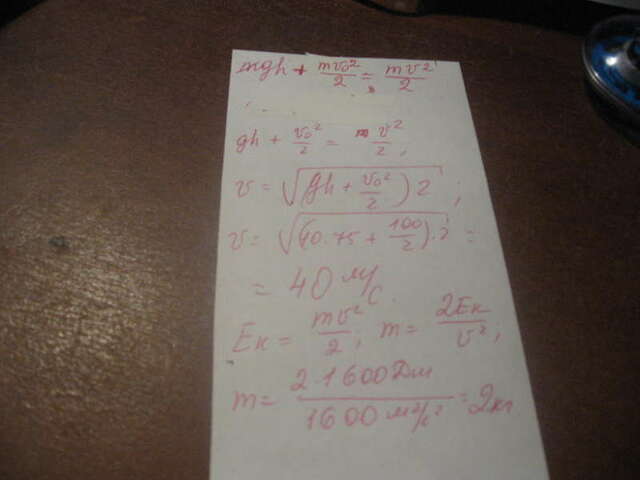 mgh + mv₀²/2 = mv²/2
gh + v₀²/2 = v²/2;
v = √(gh + v₀²/2) 2;
v = √(10·75 + 100/2)·2 =
= 40 м/с.
Eк = mv²/2; m = 2Eк/v²;
m = 2·1600 Дж/1600 м²/с² = 2кг